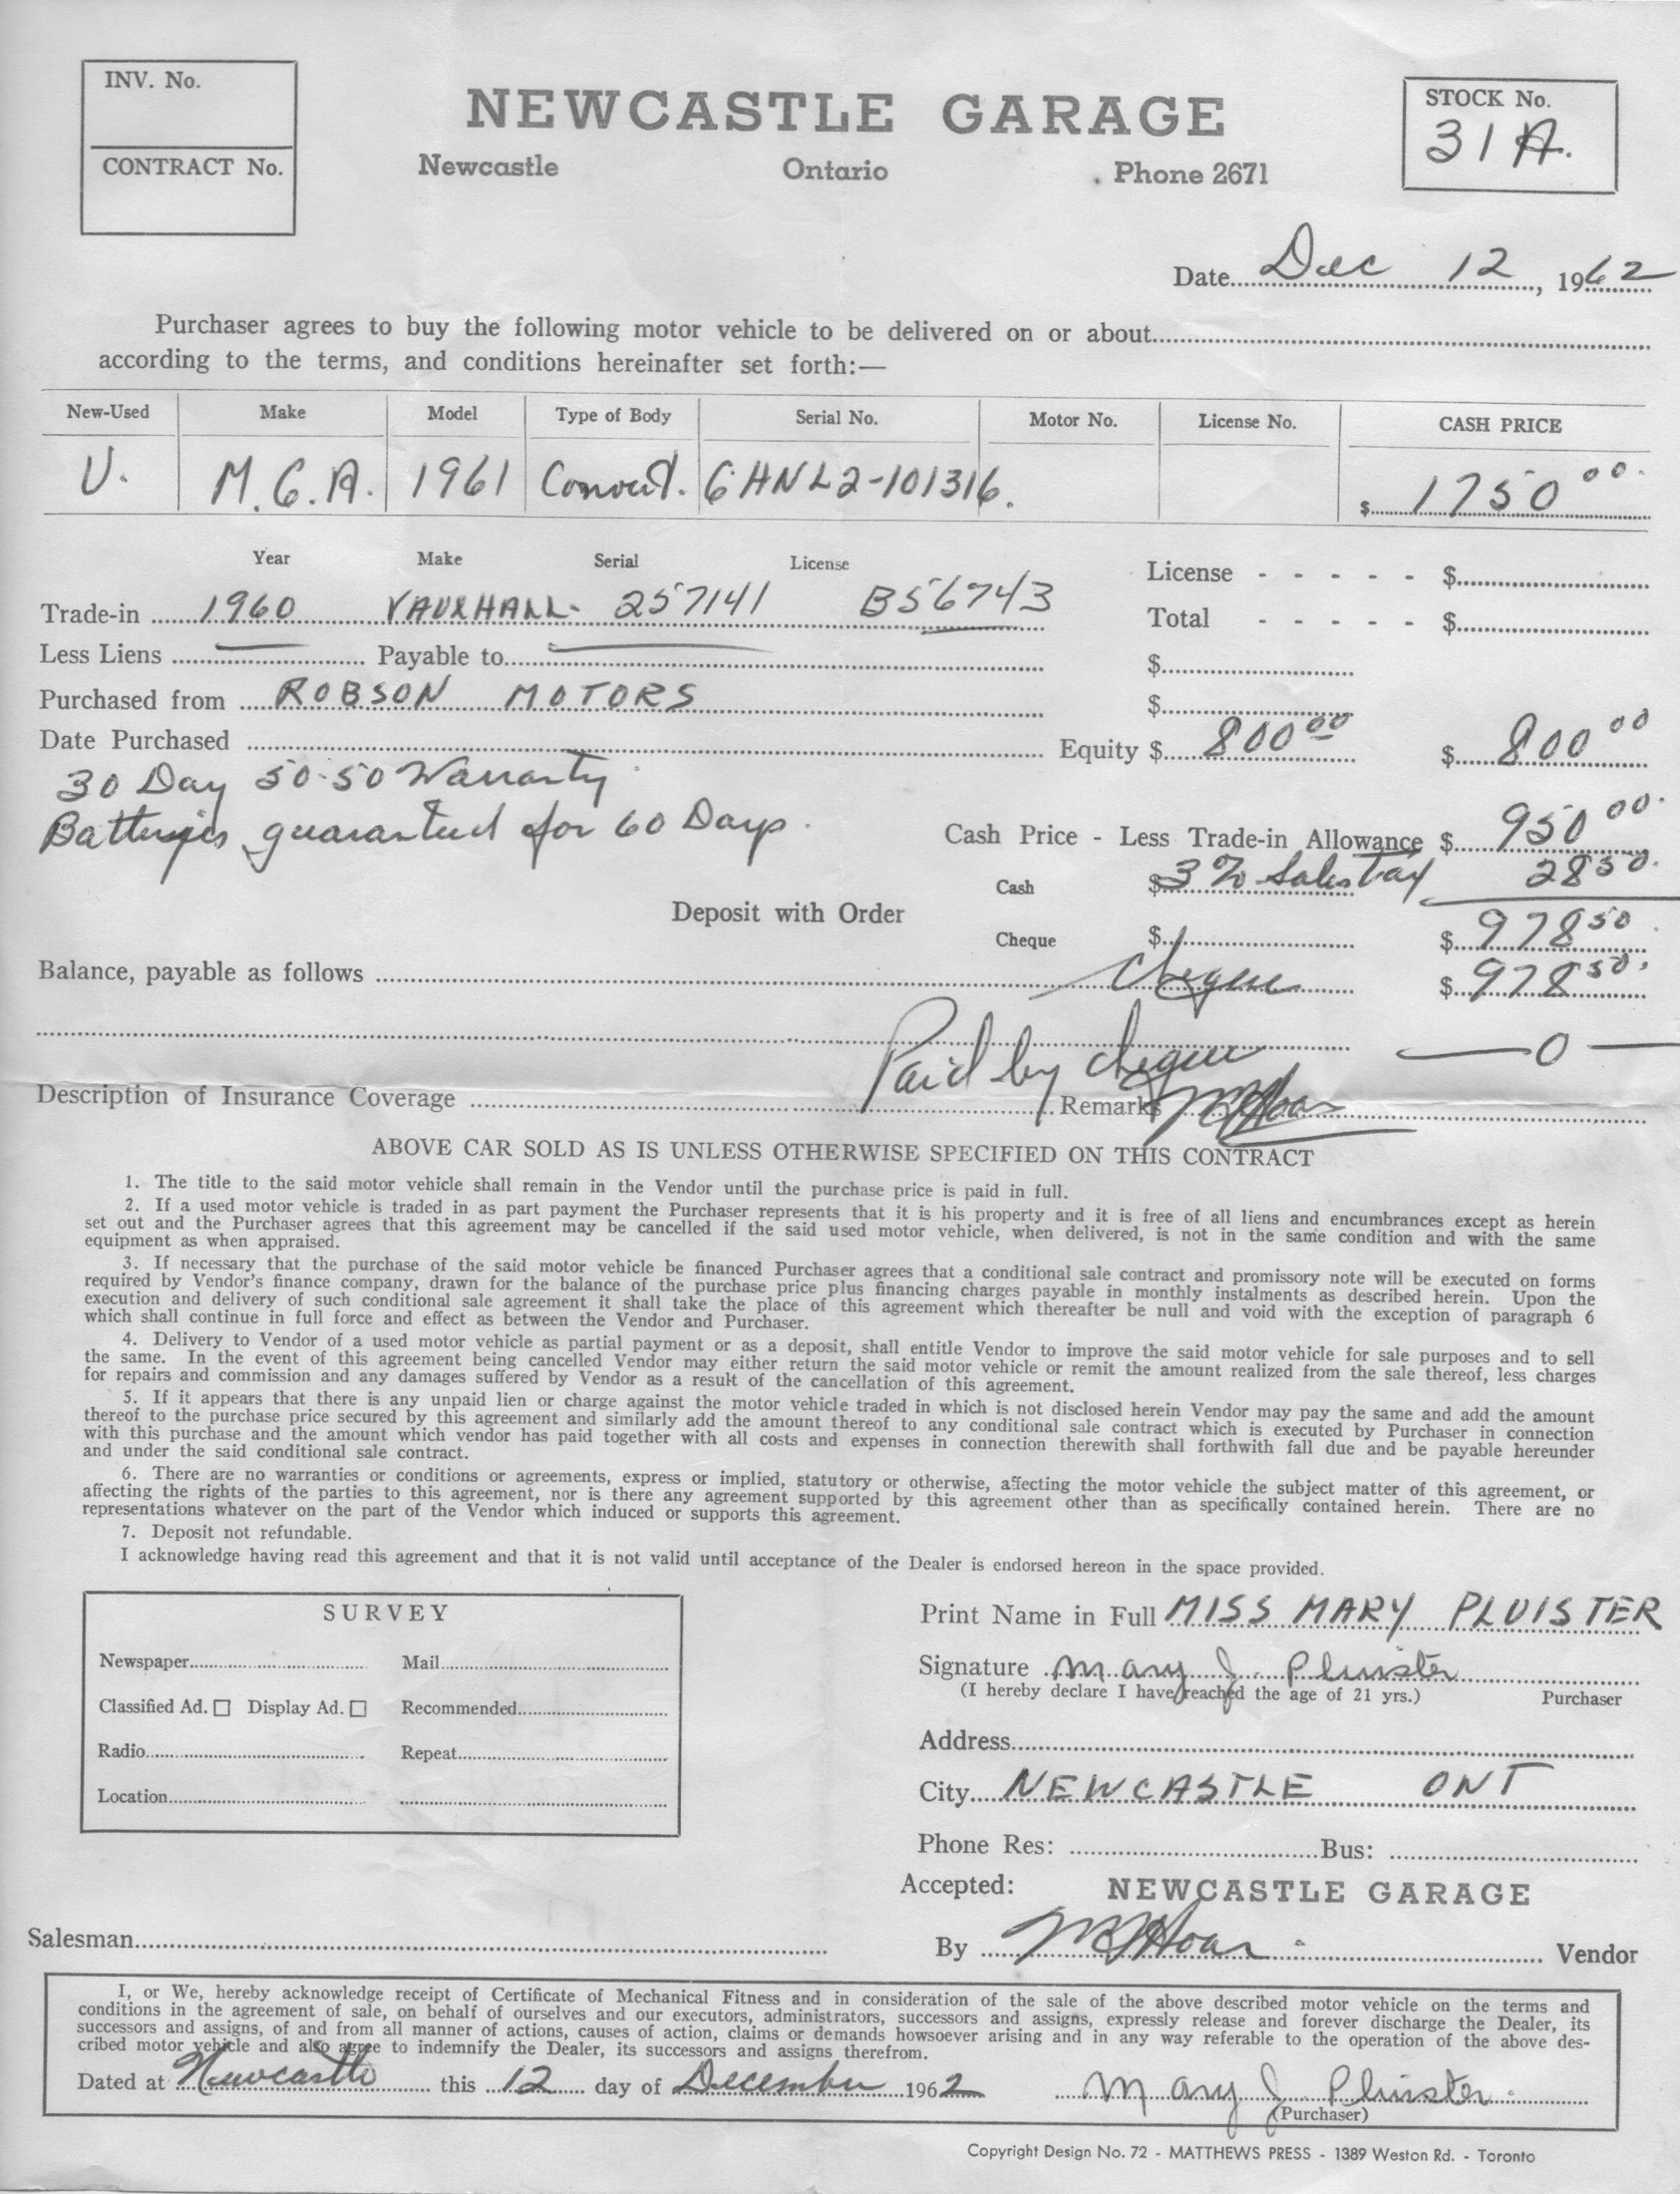 INV. No.
CONTRACT No.
NEWCASTLE GARAGE
Newcastle Ontario Phone 2671
STOCK No.
31 A.
Date Dec 12, 1962
Purchaser agrees to buy the following motor vehicle to be delivered on or about
according to the terms, and conditions hereinafter set forth:—
New-Used Make Model Type of Body Serial No. Motor No. License No. CASH PRICE
U. M.G.A. 1961 Convert. GHNL2-101316. $ 1750 00.
Year Make Serial License
Trade-in 1960 VAUXHALL- 257141 B56743
License - - - - - $
Total - - - - - $
Less Liens — Payable to —
$
Purchased from ROBSON MOTORS
$
Date Purchased Equity $ 800 00 $ 800 00
30 Day 50-50 Warranty
Batteries guaranteed for 60 Days.
Cash Price - Less Trade-in Allowance $ 950 00.
Cash $ 3% Sales Tax 28 50.
Deposit with Order
Cheque $ $ 978 50.
Balance, payable as follows cheque $ 978 50.
— 0 —
Paid by cheque
Description of Insurance Coverage Remarks
ABOVE CAR SOLD AS IS UNLESS OTHERWISE SPECIFIED ON THIS CONTRACT
1. The title to the said motor vehicle shall remain in the Vendor until the purchase price is paid in full.
2. If a used motor vehicle is traded in as part payment the Purchaser represents that it is his property and it is free of all liens and encumbrances except as herein
set out and the Purchaser agrees that this agreement may be cancelled if the said used motor vehicle, when delivered, is not in the same condition and with the same
equipment as when appraised.
3. If necessary that the purchase of the said motor vehicle be financed Purchaser agrees that a conditional sale contract and promissory note will be executed on forms
required by Vendor's finance company, drawn for the balance of the purchase price plus financing charges payable in monthly instalments as described herein. Upon the
execution and delivery of such conditional sale agreement it shall take the place of this agreement which thereafter be null and void with the exception of paragraph 6
which shall continue in full force and effect as between the Vendor and Purchaser.
4. Delivery to Vendor of a used motor vehicle as partial payment or as a deposit, shall entitle Vendor to improve the said motor vehicle for sale purposes and to sell
the same. In the event of this agreement being cancelled Vendor may either return the said motor vehicle or remit the amount realized from the sale thereof, less charges
for repairs and commission and any damages suffered by Vendor as a result of the cancellation of this agreement.
5. If it appears that there is any unpaid lien or charge against the motor vehicle traded in which is not disclosed herein Vendor may pay the same and add the amount
thereof to the purchase price secured by this agreement and similarly add the amount thereof to any conditional sale contract which is executed by Purchaser in connection
with this purchase and the amount which vendor has paid together with all costs and expenses in connection therewith shall forthwith fall due and be payable hereunder
and under the said conditional sale contract.
6. There are no warranties or conditions or agreements, express or implied, statutory or otherwise, affecting the motor vehicle the subject matter of this agreement, or
affecting the rights of the parties to this agreement, nor is there any agreement supported by this agreement other than as specifically contained herein. There are no
representations whatever on the part of the Vendor which induced or supports this agreement.
7. Deposit not refundable.
I acknowledge having read this agreement and that it is not valid until acceptance of the Dealer is endorsed hereon in the space provided.
SURVEY
Newspaper Mail
Classified Ad. Display Ad. Recommended
Radio Repeat
Location
Print Name in Full MISS MARY PLUISTER
Signature Mary J. Pluister
(I hereby declare I have reached the age of 21 yrs.) Purchaser
Address
City NEWCASTLE ONT
Phone Res: Bus:
Accepted: NEWCASTLE GARAGE
Salesman
By Hoar Vendor
I, or We, hereby acknowledge receipt of Certificate of Mechanical Fitness and in consideration of the sale of the above described motor vehicle on the terms and
conditions in the agreement of sale, on behalf of ourselves and our executors, administrators, successors and assigns, expressly release and forever discharge the Dealer, its
successors and assigns, of and from all manner of actions, causes of action, claims or demands howsoever arising and in any way referable to the operation of the above des-
cribed motor vehicle and also agree to indemnify the Dealer, its successors and assigns therefrom.
Dated at Newcastle this 12 day of December 1962 Mary J. Pluister
(Purchaser)
Copyright Design No. 72 - MATTHEWS PRESS - 1389 Weston Rd. - Toronto